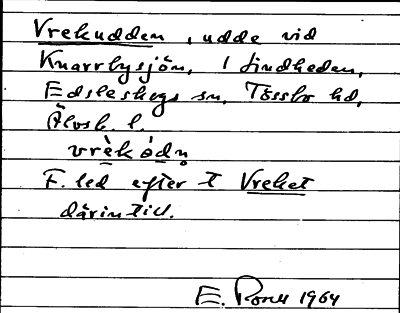 Vrekudden, udde vid
Knarrbysjön, i Lindheden,
Edsleskogs sn, Tössbo hd,
Älvsb. l.
vrèk ódn
F. led efter t Vreket
därintill.
E. 1964